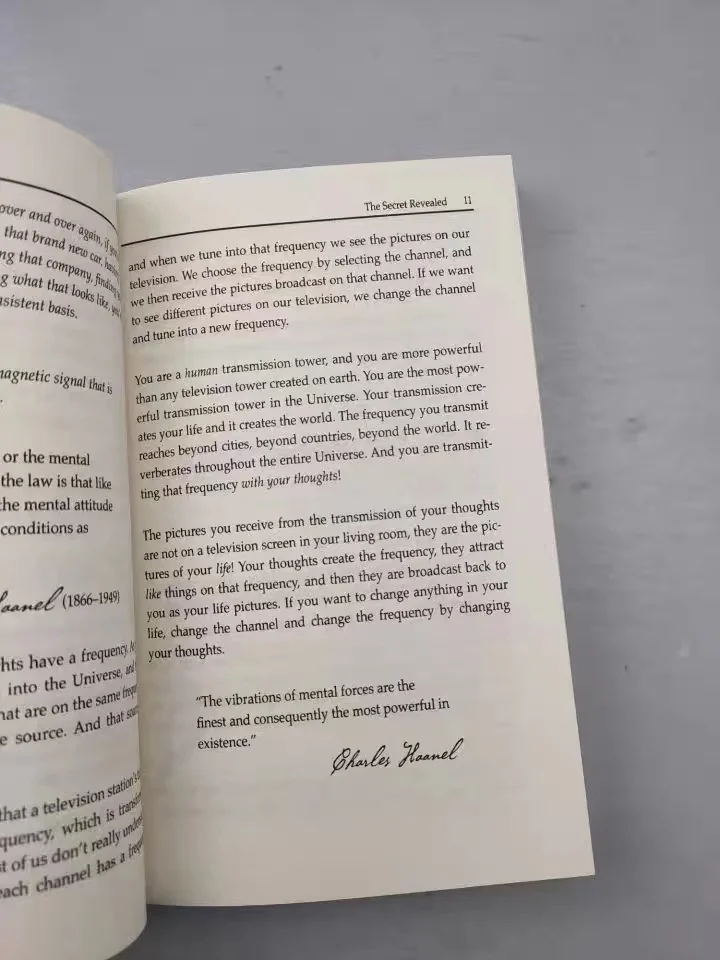 over and over again, if
that brand new car,
ng that company, finding
g what that looks like,
nsistent basis.
magnetic signal that is
.
or the mental
the law is that like
the mental attitude
conditions as
Haanel (1866–1949)
hts have a frequency.
into the Universe, and
hat are on the same
e source. And that
that a television station's
quency, which is
st of us don't really
each channel has a
The Secret Revealed 11
and when we tune into that frequency we see the pictures on our
television. We choose the frequency by selecting the channel, and
we then receive the pictures broadcast on that channel. If we want
to see different pictures on our television, we change the channel
and tune into a new frequency.
You are a human transmission tower, and you are more powerful
than any television tower created on earth. You are the most pow-
erful transmission tower in the Universe. Your transmission cre-
ates your life and it creates the world. The frequency you transmit
reaches beyond cities, beyond countries, beyond the world. It re-
verberates throughout the entire Universe. And you are transmit-
ting that frequency with your thoughts!
The pictures you receive from the transmission of your thoughts
are not on a television screen in your living room, they are the pic-
tures of your life! Your thoughts create the frequency, they attract
like things on that frequency, and then they are broadcast back to
you as your life pictures. If you want to change anything in your
life, change the channel and change the frequency by changing
your thoughts.
"The vibrations of mental forces are the
finest and consequently the most powerful in
existence."
Charles Haanel